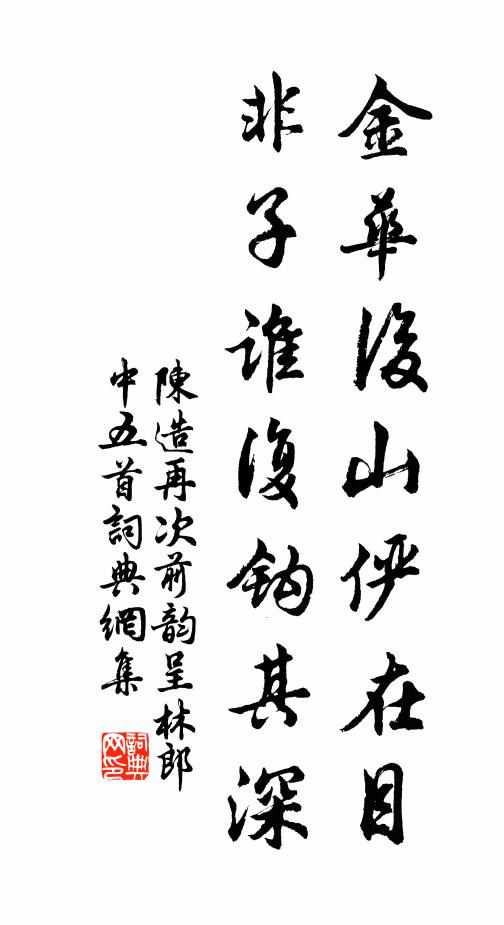 金華後山儼在目
非子誰復鈎其深
陳造再次前韵呈林郎
中五首詞典網集
詞典
网印